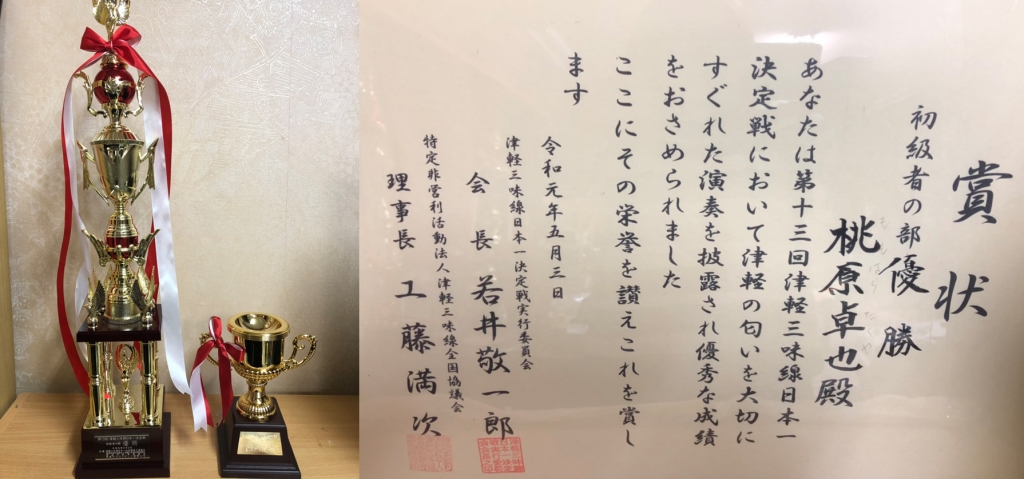 賞状
初級者の部優勝
桃原卓也殿
あなたは第十三回津軽三味線日本一
決定戦において津軽の匂いを大切に
すぐれた演奏を披露され優秀な成績
をおさめられました
ここにその栄挙を讃えこれを賞し
ます
令和元年五月三日
津軽三味線日本一決定戦実行委員会
会長 若井敬一郎
特定非営利活動法人津軽三味線全国協議会
理事長 工藤満次